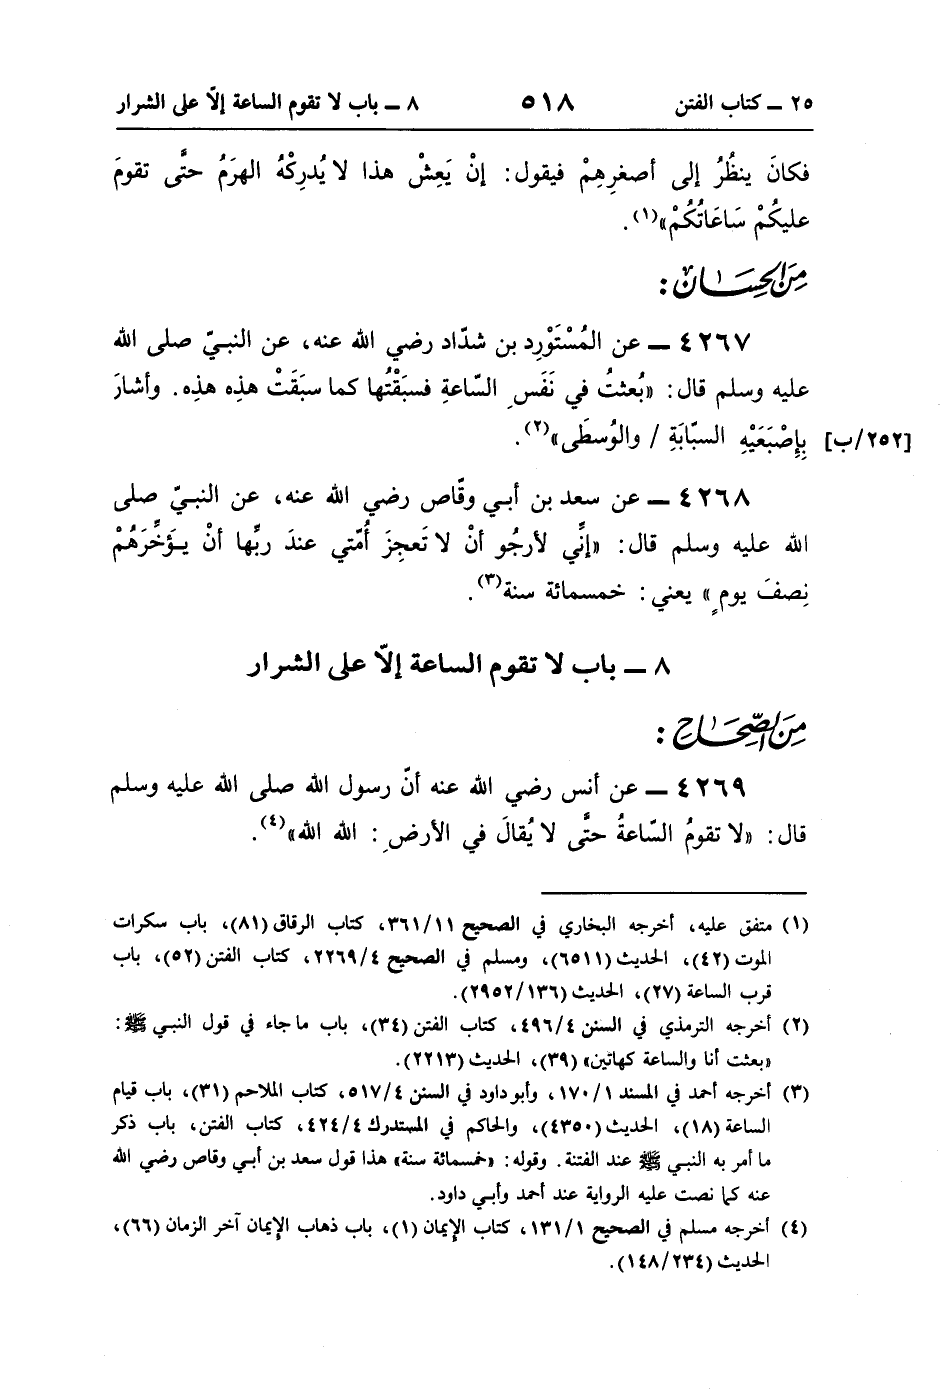 ٢٥ ــ كتاب الفتن ٥١٨ ٨ ــ باب لا تقوم الساعة إلاّ على الشرار
فكانَ ينظُرُ إلى أصغرِهِمْ فيقول: إنْ يَعِشْ هذا لا يُدرِكْهُ الهرَمُ حتَّى تقومَ
عليكُمْ سَاعَاتُكُمْ»(١).
مِنَ الحِسَان:
٤٢٦٧ ــ عن المُسْتَوْرِد بن شدّاد رضي الله عنه، عن النبيّ صلى الله
عليه وسلم قال: «بُعثتُ في نَفَسِ السّاعةِ فسبَقْتُها كما سبَقَتْ هذِه هذِه. وأشارَ
بِإِصْبَعَيْهِ السبّابَةِ / والوُسطَى»(٢). [٢٥٢/ب]
٤٢٦٨ ــ عن سعد بن أبي وقّاص رضي الله عنه، عن النبيّ صلى
الله عليه وسلم قال: «إنِّي لأرجُو أنْ لا تَعجِزَ أُمّتي عندَ ربِّها أنْ يـؤَخِّرَهُمْ
نِصفَ يومٍ» يعني: خمسمائة سنة(٣).
٨ ــ باب لا تقوم الساعة إلاّ على الشرار
مِنَ الصِّحَاحِ:
٤٢٦٩ ــ عن أنس رضي الله عنه أنّ رسول الله صلى الله عليه وسلم
قال: «لا تقومُ السّاعةُ حتَّى لا يُقالَ في الأرضِ: الله الله»(٤).
(١) متفق عليه، أخرجه البخاري في الصحيح ٣٦١/١١، كتاب الرقاق (٨١)، باب سكرات
الموت (٤٢)، الحديث (٦٥١١)، ومسلم في الصحيح ٢٢٦٩/٤، كتاب الفتن (٥٢)، باب
قرب الساعة (٢٧)، الحديث (٢٩٥٢/١٣٦).
(٢) أخرجه الترمذي في السنن ٤٩٦/٤، كتاب الفتن (٣٤)، باب ما جاء في قول النبي ﷺ:
«بعثت أنا والساعة كهاتين» (٣٩)، الحديث (٢٢١٣).
(٣) أخرجه أحمد في المسند ١٧٠/١، وأبو داود في السنن ٥١٧/٤، كتاب الملاحم (٣١)، باب قيام
الساعة (١٨)، الحديث (٤٣٥٠)، والحاكم في المستدرك ٤٢٤/٤، كتاب الفتن، باب ذكر
ما أمر به النبي ﷺ عند الفتنة. وقوله: «خمسمائة سنة» هذا قول سعد بن أبي وقاص رضي الله
عنه كما نصت عليه الرواية عند أحمد وأبي داود.
(٤) أخرجه مسلم في الصحيح ١٣١/١، كتاب الإيمان (١)، باب ذهاب الإيمان آخر الزمان (٦٦)،
الحديث (١٤٨/٢٣٤).